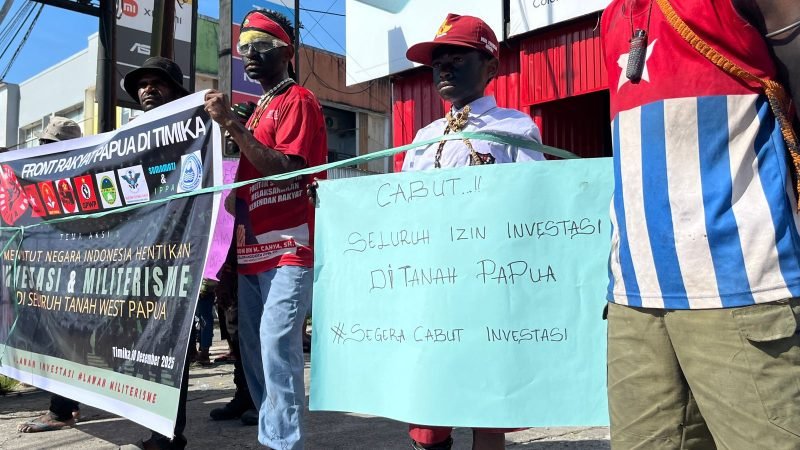 mi
XIAOMI
ASUS
FRONT RAKYAT PAPUA DI TIMIKA
SONAMAPPA
IPPA
TEMA AKSI:
MENUTUT NEGARA INDONESIA HENTIKAN
INVESTASI & MILITERISME
DI SELURUH TANAH WEST PAPUA
Timika, 10 Desember 2025
#LAWAN INVESTASI #LAWAN MILITERISME
MELAKSANAKAN
KEHENDAK RAKYAT
CABUT...!!
SELURUH IZIN INVESTASI
DI TANAH PAPUA
#SEGERA CABUT INVESTASI